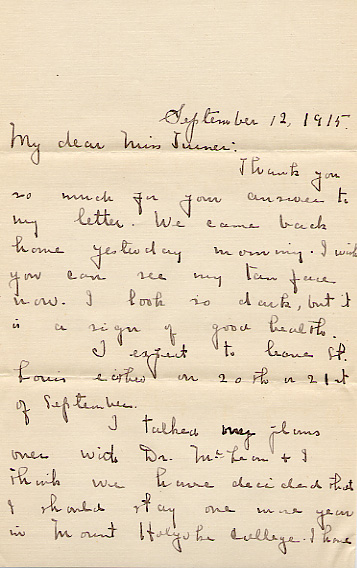 September 12, 1915.
My dear Miss Turner:
Thank you
so much for your answer to
my letter. We came back
home yesterday morning. I wish
you can see my tan face
now. I look so dark, but it
is a sign of good health.
I expect to leave St.
Louis either on 20th or 21st
of September.
I talked my plans
over with Dr. McLean & I
think we have decided that
I should stay one more year
in Mount Holyoke College. I have